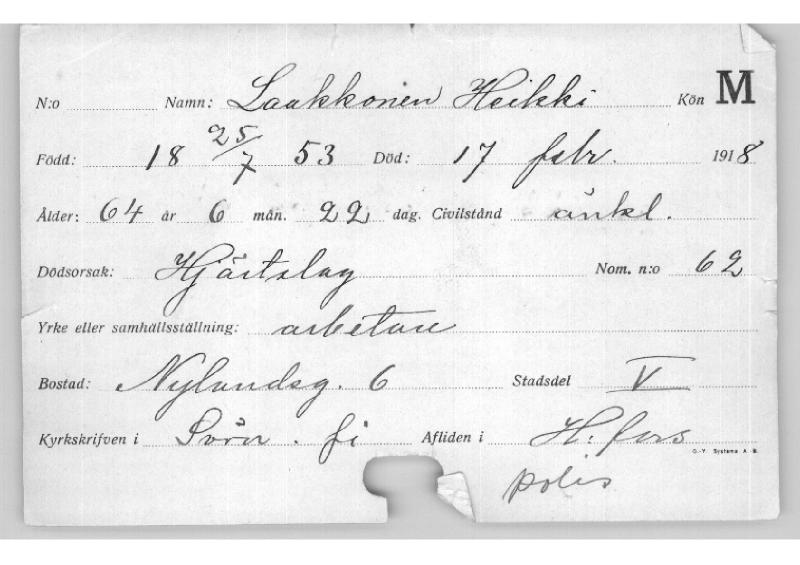 N:o Namn: Laakkonen Heikki Kön M
Född: 18 25/7 53 Död: 17 febr. 1918
Ålder: 64 år 6 mån. 22 dag. Civilstånd änkl.
Dödsorsak: Hjärtslag Nom. n:o 62
Yrke eller samhällsställning: arbetare
Bostad: Nylandsg. 6 Stadsdel V
Kyrkskrifven i fi Afliden i H:fors
O.-Y. Systema A.-B.
polis